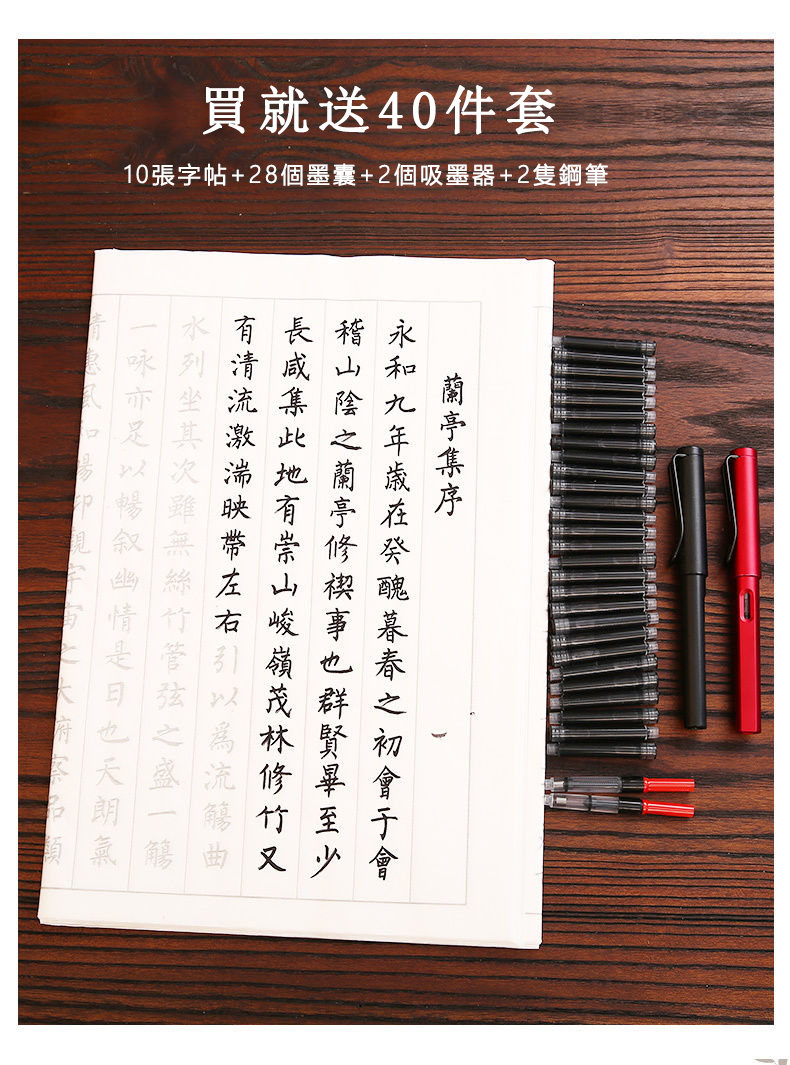 買就送40件套
10張字帖+28個墨囊+2個吸墨器+2隻鋼筆
蘭亭集序
永和九年歲在癸醜暮春之初會于會
稽山陰之蘭亭修禊事也群賢畢至少
長咸集此地有崇山峻嶺茂林修竹又
有清流激湍映帶左右引以爲流觴曲
水列坐其次雖無絲竹管弦之盛一觴
一咏亦足以暢叙幽情是日也天朗氣
清惠風和暢仰觀宇宙之大俯察品類